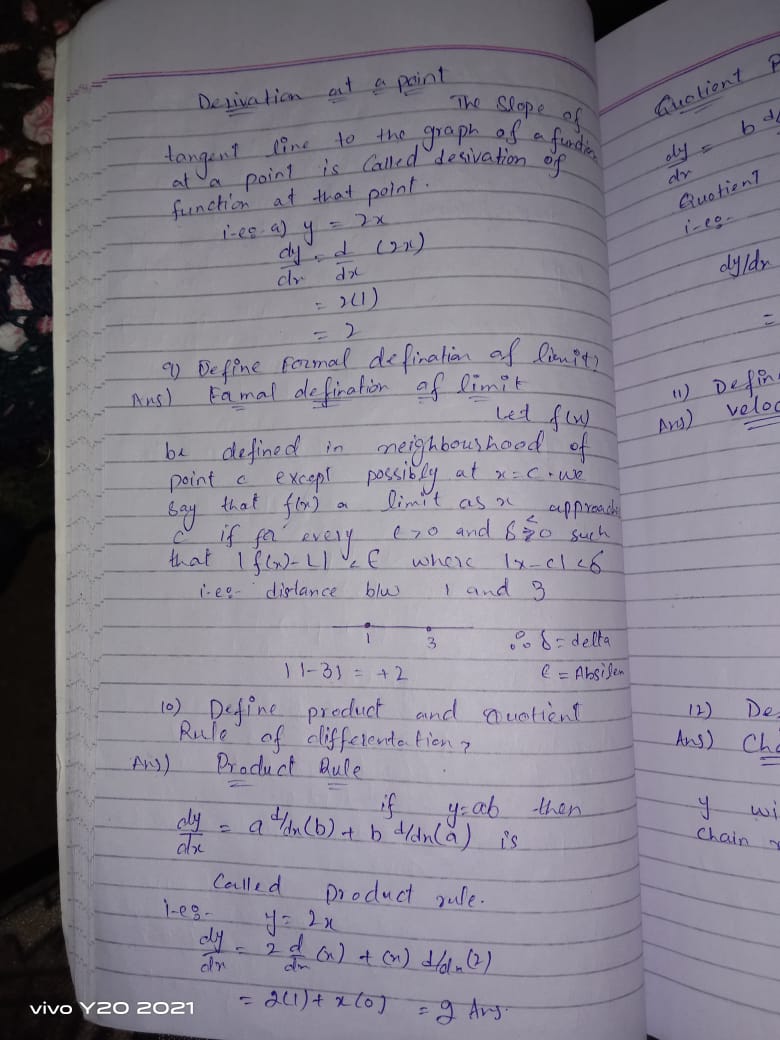 Derivation at a point
The slope of
tangent line to the graph of a function
at a point is called derivation of
function at that point.
i-eg. a) y = 2x
dy/dx = d/dx (2x)
= 2(1)
= 2
9) Define Formal defination of limit?
Ans) Famal defination of limit
Let f(x)
be defined in neighbourhood of
point c except possibly at x=c. we
say that f(x) a limit as x approach
c if for every ϵ>0 and δ>0 such
that |f(x)-L| < ϵ where |x-c|<δ
i-eg- distance b/w 1 and 3
1 3
∴ δ = delta
|1-3| = +2 ϵ = Absilen
10) Define product and Quotient
Rule of differentation?
Ans) Product Rule
if y=ab then
dy/dx = a d/dx(b) + b d/dx(a) is
Called product rule.
i-eg- y = 2x
dy/dx = 2 d/dx (x) + (x) d/dx(2)
= 2(1) + x(0) = 2 Ans.
Quotient
dy/dx = b
Quotient
i-eg-
dy/dx
=
11) Defin
Ans) veloc
12) De
Ans) Cha
y wi
chain
vivo Y20 2021